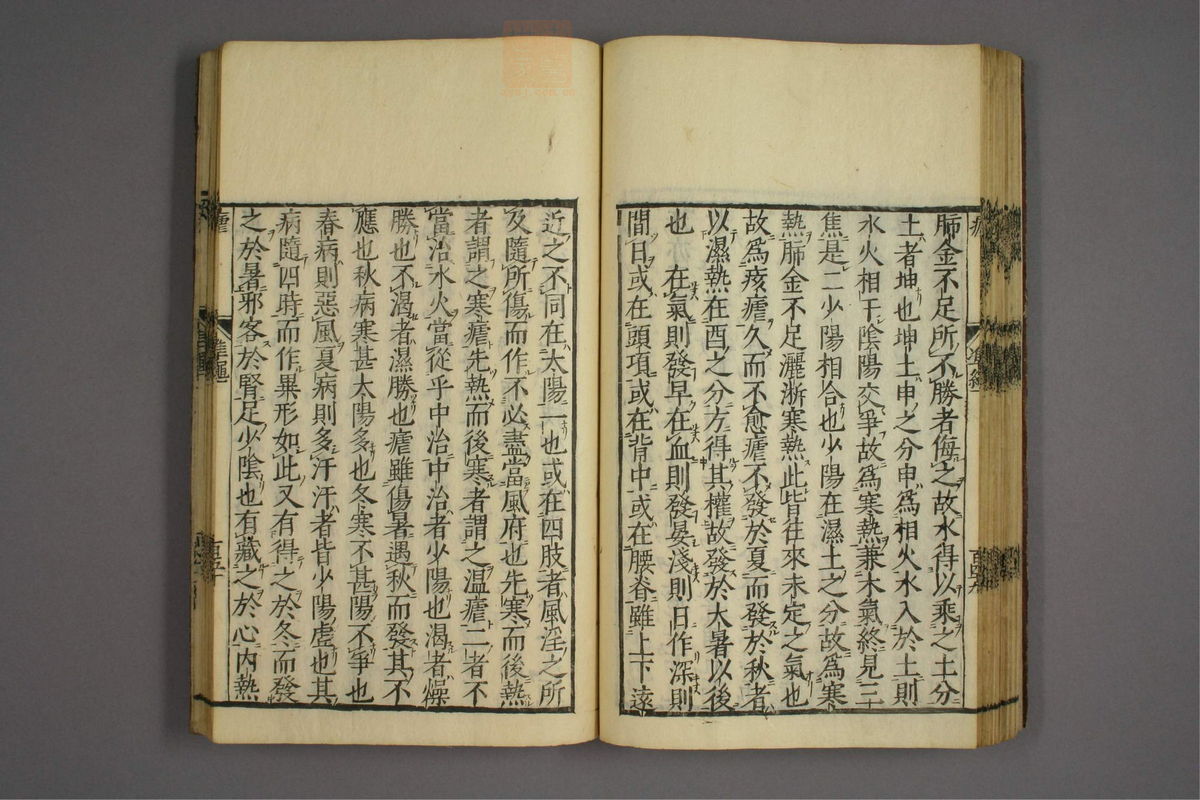 肺金不足所不勝者侮之故水得以乗之土分
土者坤也坤土申之分申為相火水入於土則
水火相干陰陽交爭故為寒熱兼木氣終見三
焦是二少陽相合也少陽在濕土之分故為寒
熱肺金不足灑淅寒熱此皆往來未定之氣也
故為痎瘧久而不愈瘧不發於夏而發於秋者
以濕熱在酉之分方得其權故發於大暑以後
也　在氣則發早在血則發晏淺則日作深則
間日或在頭項或在背中或在腰脊雖上下遠
近之不同在太陽一也或在四肢者風淫之所
及隨所傷而作不必盡當風府也先寒而後熱
者謂之寒瘧先熱而後寒者謂之溫瘧二者不
當治水火當從乎中治中治者少陽也渴者燥
勝也不渴者濕勝也瘧雖傷暑遇秋而發其不
應也秋病寒甚太陽多也冬寒不甚陽不爭也
春病則惡風夏病則多汗汗者皆少陽虛也其
病隨四時而作異形如此又有得之於冬而發
之於暑邪客於腎足少陰也有藏之於心內熱